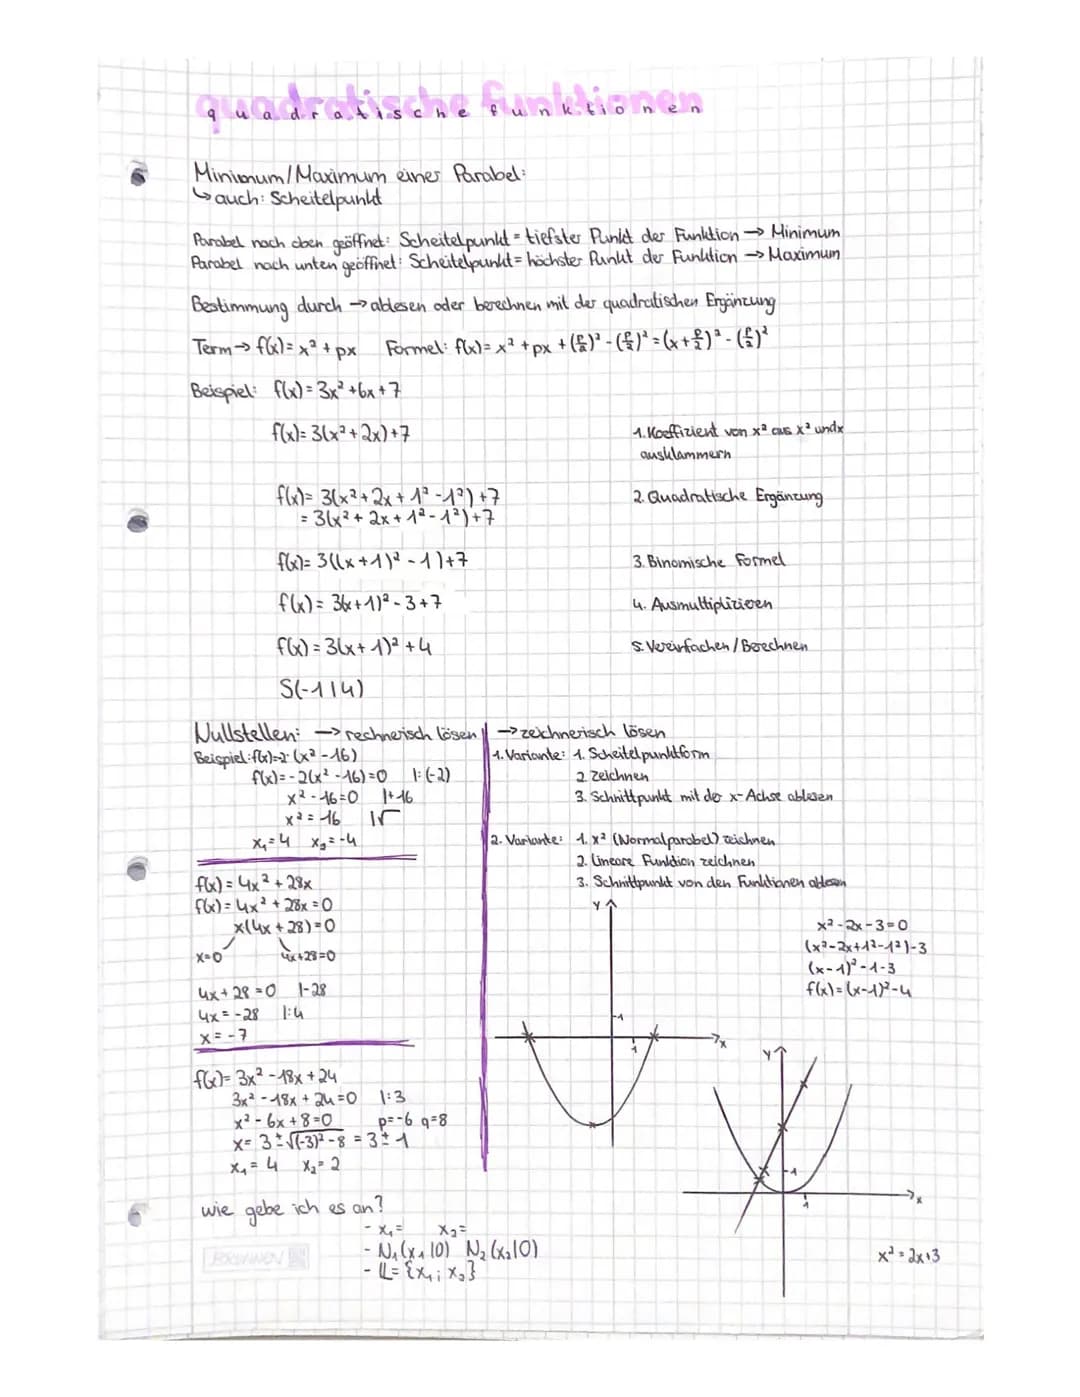 quadratische funktionen
Minimum/Maximum einer Parabel:
↳ auch: Scheitelpunkt
Parabel nach oben geöffnet: Scheitelpunkt = tiefster Punkt der Funktion → Minimum
Parabel nach unten geöffnet: Scheitelpunkt = höchster Punkt der Funktion → Maximum
Bestimmung durch → ablesen oder berechnen mit der quadratischen Ergänzung
Term → f(x) = x² + px Formel: f(x) = x² + px + (p/2)² - (p/2)² = (x + p/2)² - (p/2)²
Beispiel: f(x) = 3x² + 6x + 7
f(x) = 3(x² + 2x) + 7 1. Koeffizient von x² aus x² und x
ausklammern
f(x) = 3(x² + 2x + 1² - 1²) + 7 2. Quadratische Ergänzung
= 3(x² + 2x + 1² - 1²) + 7
f(x) = 3((x + 1)² - 1) + 7 3. Binomische Formel
f(x) = 3(x + 1)² - 3 + 7 4. Ausmultiplizieren
f(x) = 3(x + 1)² + 4 5. Vereinfachen / Berechnen
S(-1|4)
Nullstellen: → rechnerisch lösen
Beispiel: f(x) = -2 (x² - 16)
f(x) = -2(x² - 16) = 0 |:(-2)
x² - 16 = 0 |+16
x² = 16 |√
x₁ = 4 x₂ = -4
f(x) = 4x² + 28x
f(x) = 4x² + 28x = 0
x(4x + 28) = 0
x = 0 4x + 28 = 0
4x + 28 = 0 |-28
4x = -28 |:4
x = -7
f(x) = 3x² - 18x + 24
3x² - 18x + 24 = 0 |:3
x² - 6x + 8 = 0 p = -6 q = 8
x = 3 ± √(-3)² - 8 = 3 ± 1
x₁ = 4 x₂ = 2
→ zeichnerisch lösen
1. Variante: 1. Scheitelpunktform
2. zeichnen
3. Schnittpunkt mit der x-Achse ablesen
2. Variante: 1. x² (Normalparabel) zeichnen
2. Lineare Funktion zeichnen
3. Schnittpunkt von den Funktionen ablesen
y
1
1
x
x² - 2x - 3 = 0
(x² - 2x + 1² - 1²) - 3
(x - 1)² - 1 - 3
f(x) = (x - 1)² - 4
y
1
1
x
x² = 2x + 3
wie gebe ich es an?
- x₁ = x₂ =
- N₁(x₁|0) N₂(x₂|0)
- 𝕃 = {x₁; x₂}